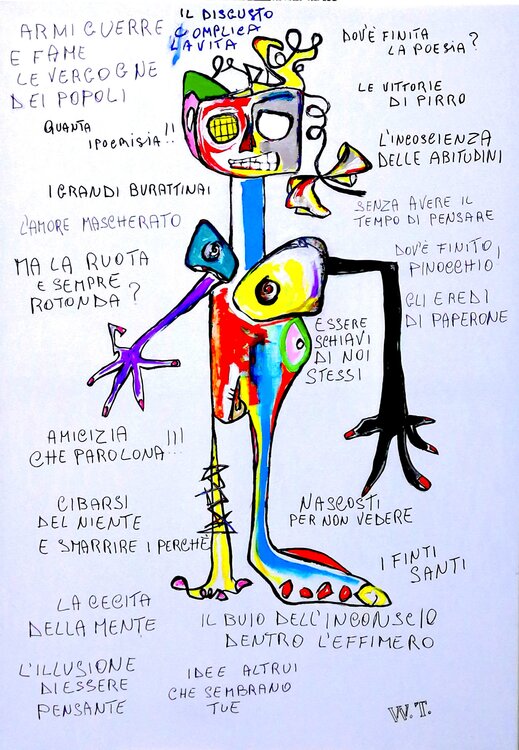 IL DISGUSTO
COMPLICA
LA VITA
ARMI GUERRE
E FAME
LE VERGOGNE
DEI POPOLI
DOV'È FINITA
LA POESIA?
LE VITTORIE
DI PIRRO
QUANTA
IPOCRISIA!!
L'INCOSCIENZA
DELLE ABITUDINI
I GRANDI BURATTINAI
L'AMORE MASCHERATO
SENZA AVERE IL
TEMPO DI PENSARE
MA LA RUOTA
E SEMPRE
ROTONDA?
DOV'È FINITO
PINOCCHIO,
GLI EREDI
DI PAPERONE
ESSERE
SCHIAVI
DI NOI
STESSI
AMICIZIA
CHE PAROLONA...!!!
CIBARSI
DEL NIENTE
E SMARRIRE I PERCHÈ
NASCOSTI
PER NON VEDERE
I FINTI
SANTI
LA CECITA
DELLA MENTE
IL BUIO DELL'INCONSCIO
DENTRO L'EFFIMERO
L'ILLUSIONE
DI ESSERE
PENSANTE
IDEE ALTRUI
CHE SEMBRANO
TUE
W.T.